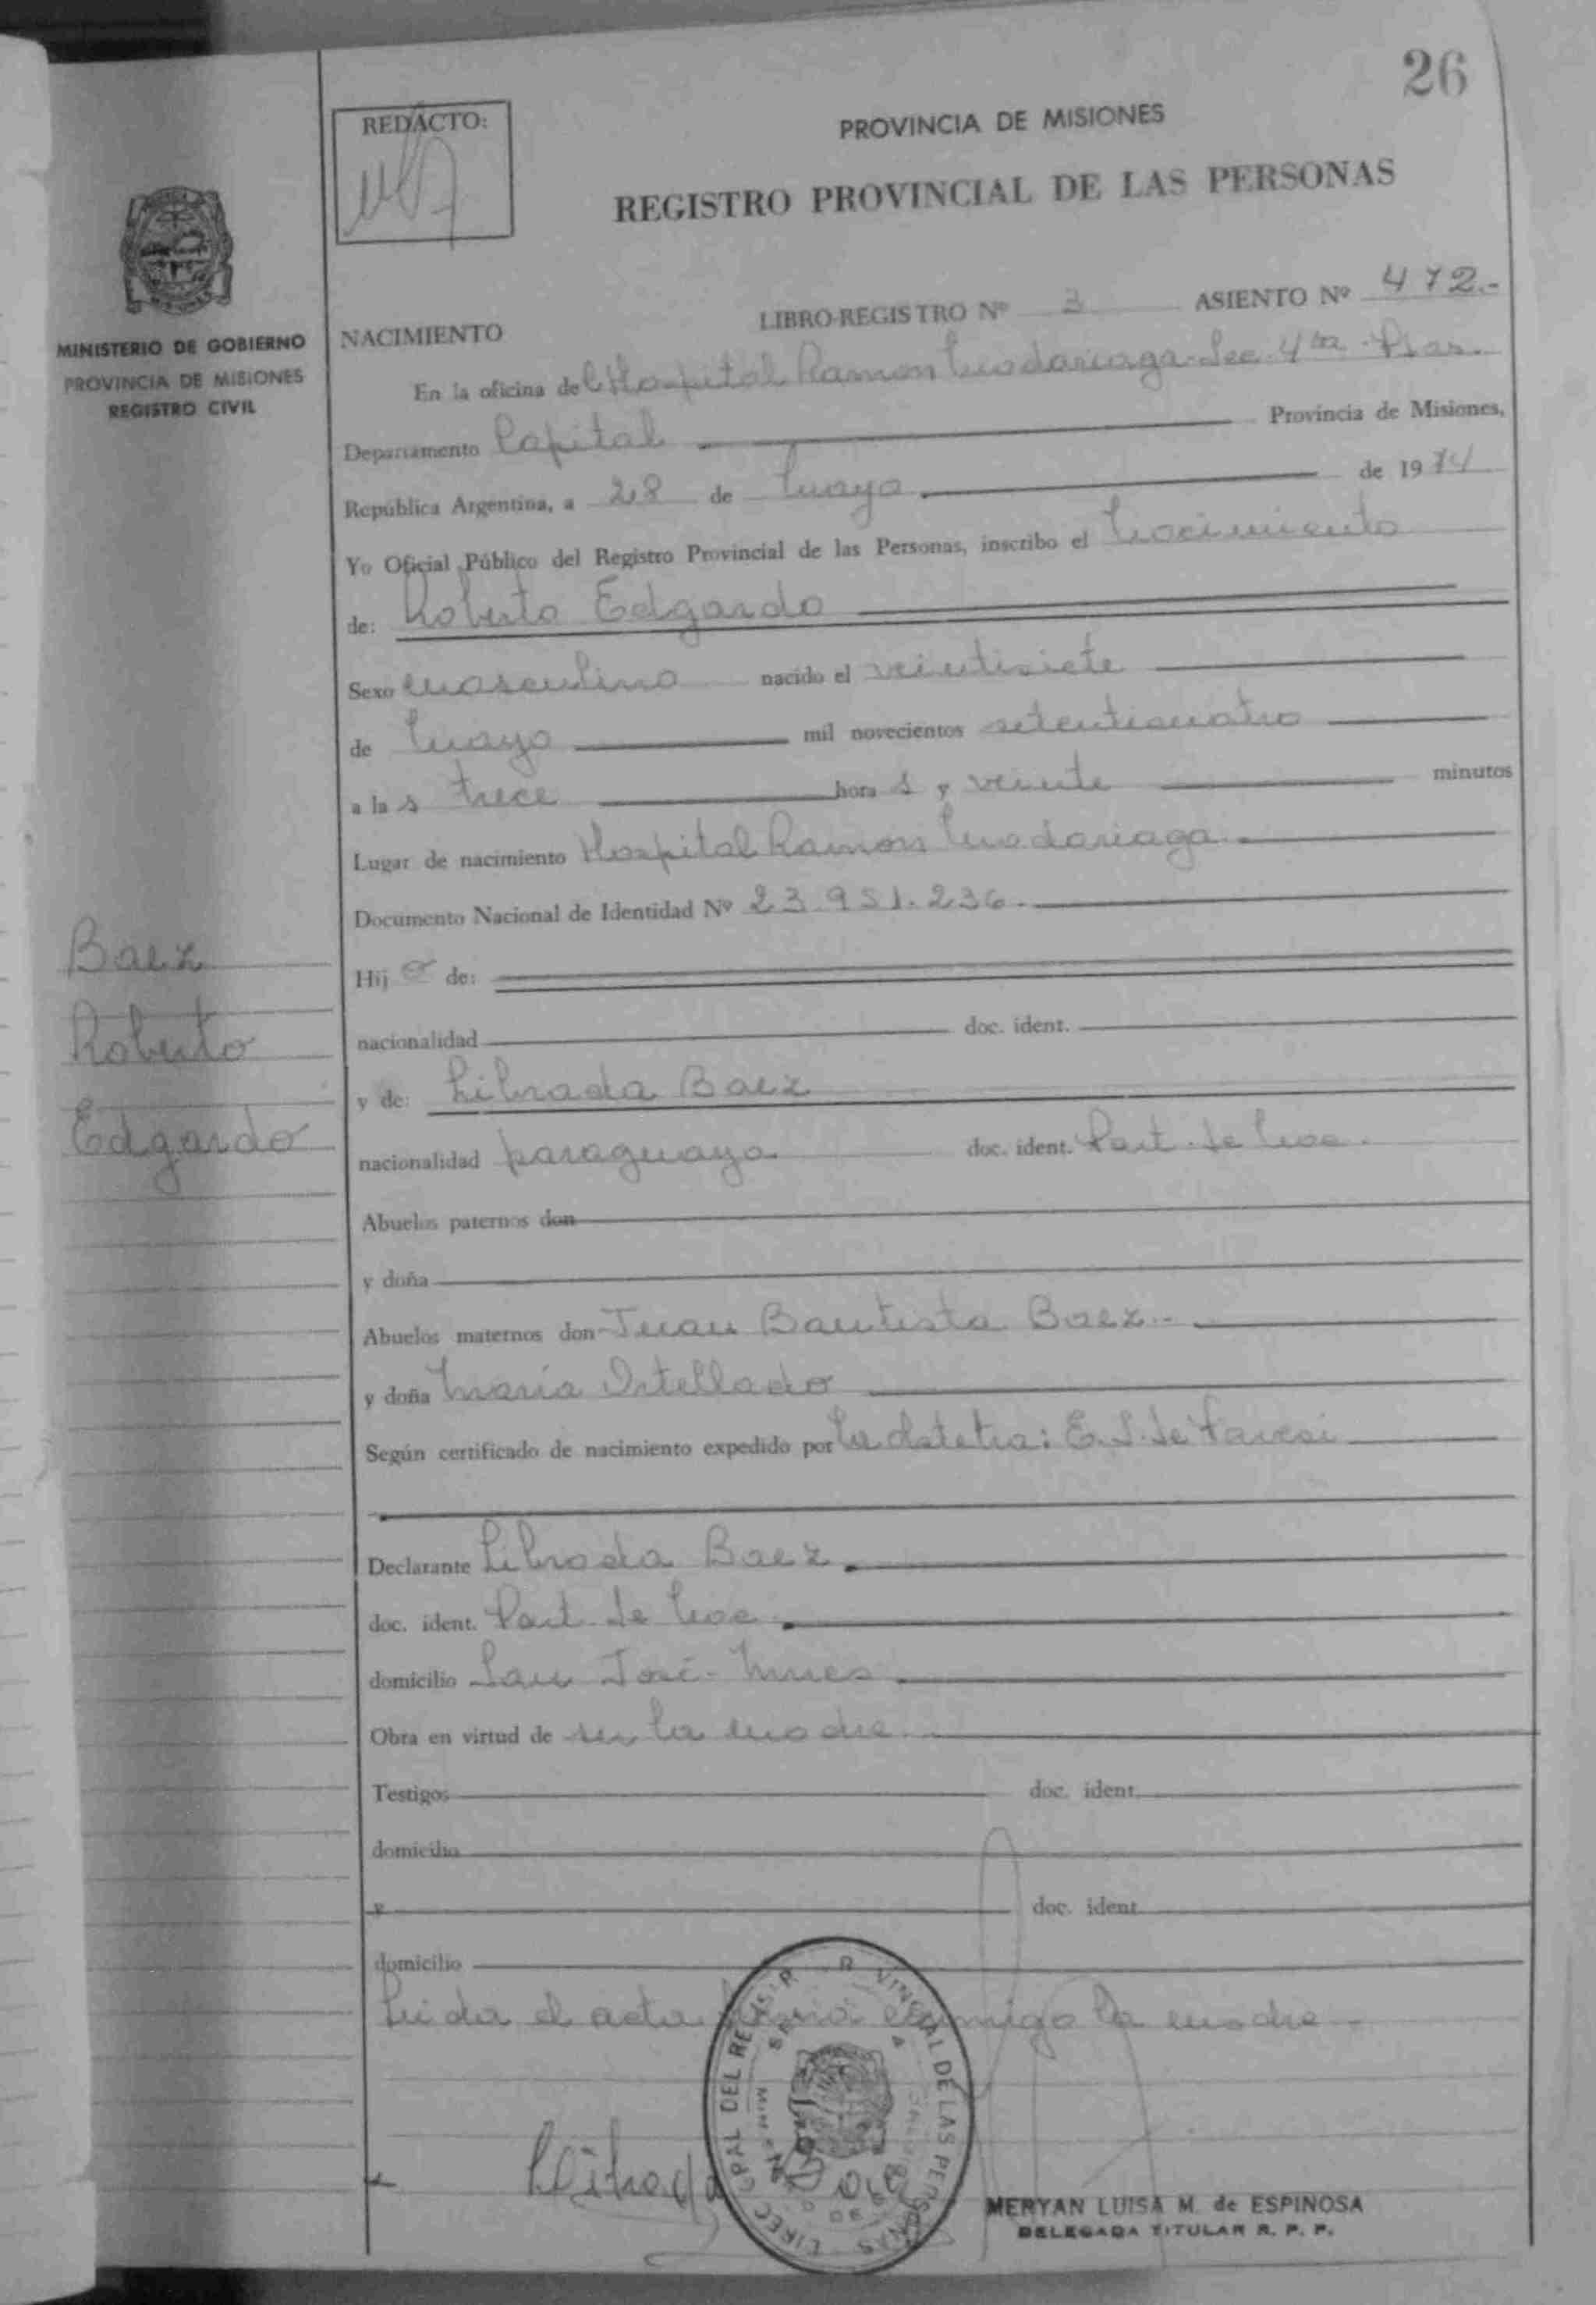 26
REDACTO:
PROVINCIA DE MISIONES
REGISTRO PROVINCIAL DE LAS PERSONAS
MINISTERIO DE GOBIERNO
PROVINCIA DE MISIONES
REGISTRO CIVIL
NACIMIENTO
LIBRO-REGISTRO Nº 3 ASIENTO Nº 472.-
En la oficina del Hospital Ramon Madariaga Sec. 4ta Pdas.
Departamento Capital Provincia de Misiones,
República Argentina, a 28 de mayo de 1974
Yo Oficial Público del Registro Provincial de las Personas, inscribo el nacimiento
de: Roberto Edgardo
Sexo masculino nacido el veintisiete
de mayo mil novecientos setenticuatro
a las trece horas y veinte minutos
Lugar de nacimiento Hospital Ramon Madariaga.
Documento Nacional de Identidad Nº 23.951.236.
Baez
Roberto
Edgardo
Hijo de:
nacionalidad doc. ident.
y de: Librada Baez
nacionalidad paraguaya doc. ident. Part. de Nac.
Abuelos paternos don
y doña
Abuelos maternos don Juan Bautista Baez.-
y doña Maria Ortellado
Según certificado de nacimiento expedido por la obstetra: E. S. de
Declarante Librada Baez.
doc. ident. Part. de Nac.
domicilio San José - Mnes.
Obra en virtud de ser la madre.
Testigos doc. ident.
domicilio
y doc. ident.
domicilio
Leida el acta firma conmigo la madre.-
Librada Baez
MERYAN LUISA M. de ESPINOSA
DELEGADA TITULAR R. P. P.